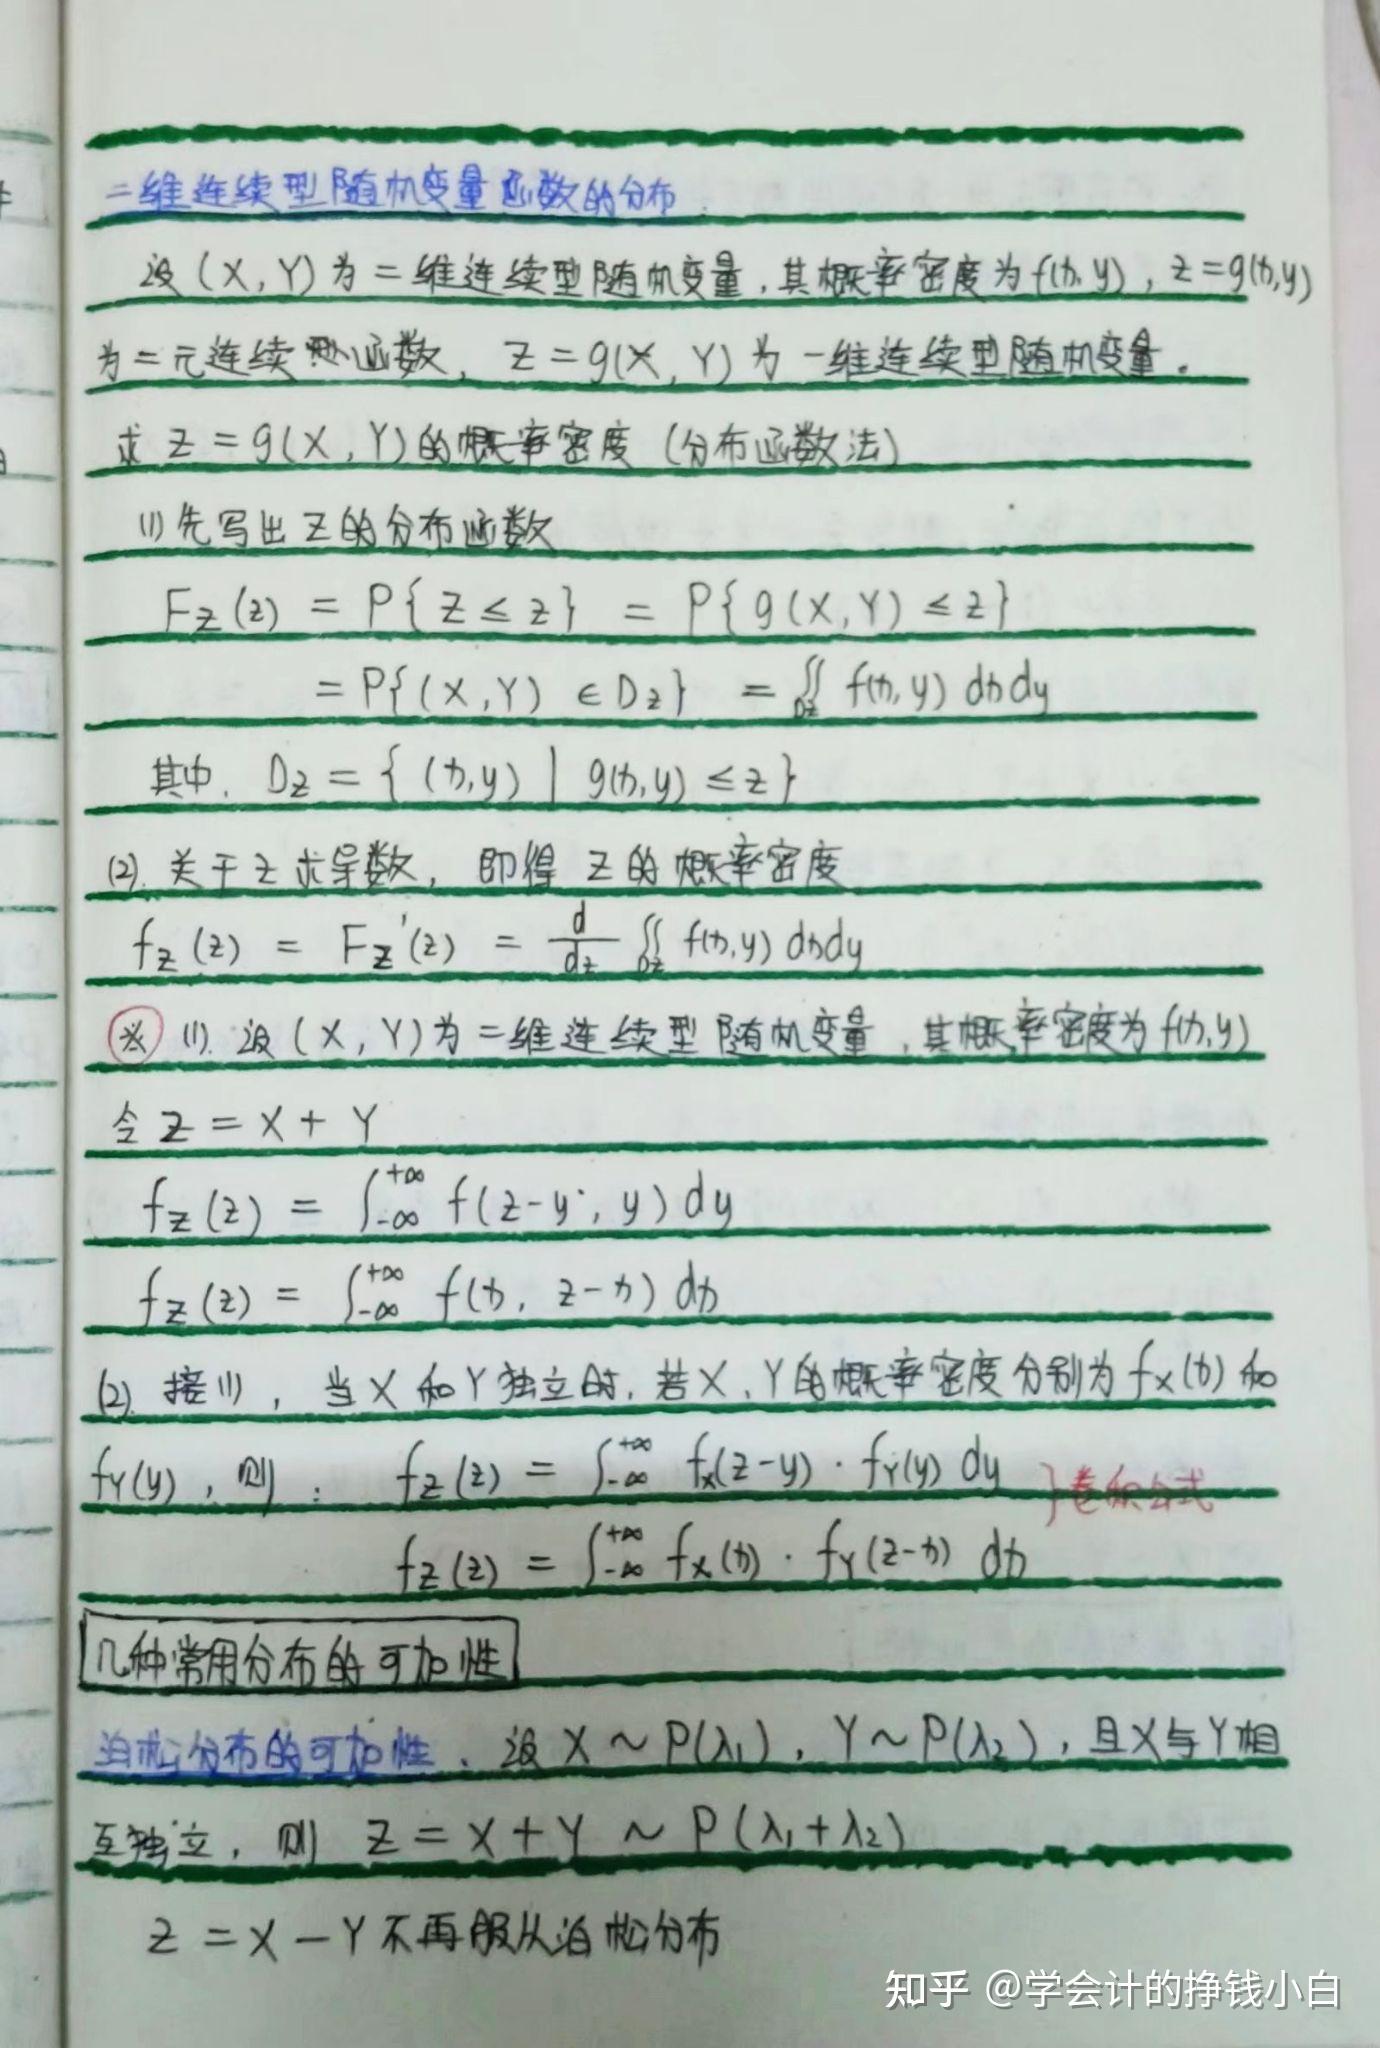 二维连续型随机变量函数的分布
设(X,Y)为二维连续型随机变量,其概率密度为f(x,y),z=g(x,y)
为二元连续型函数,Z=g(X,Y)为一维连续型随机变量.
求Z=g(X,Y)的概率密度(分布函数法)
(1)先写出Z的分布函数
F_Z(z) = P{Z≤z} = P{g(X,Y)≤z}
= P{(X,Y)∈Dz} = ∬_Dz f(x,y) dxdy
其中, Dz = {(x,y) | g(x,y)≤z}
(2).关于z求导数,即得Z的概率密度
f_Z(z) = F_Z'(z) = d/dz ∬_Dz f(x,y) dxdy
※ (1).设(X,Y)为二维连续型随机变量,其概率密度为f(x,y)
令Z=X+Y
f_Z(z) = ∫_{-∞}^{+∞} f(z-y, y) dy
f_Z(z) = ∫_{-∞}^{+∞} f(x, z-x) dx
(2).接(1),当X和Y独立时,若X、Y的概率密度分别为f_X(x)和
f_Y(y),则: f_Z(z) = ∫_{-∞}^{+∞} f_X(z-y)·f_Y(y) dy
}卷积公式
f_Z(z) = ∫_{-∞}^{+∞} f_X(x)·f_Y(z-x) dx
几种常用分布的可加性
泊松分布的可加性.设X~P(λ₁),Y~P(λ₂),且X与Y相
互独立,则Z=X+Y~P(λ₁+λ₂)
Z=X-Y不再服从泊松分布
知乎 @学会计的挣钱小白